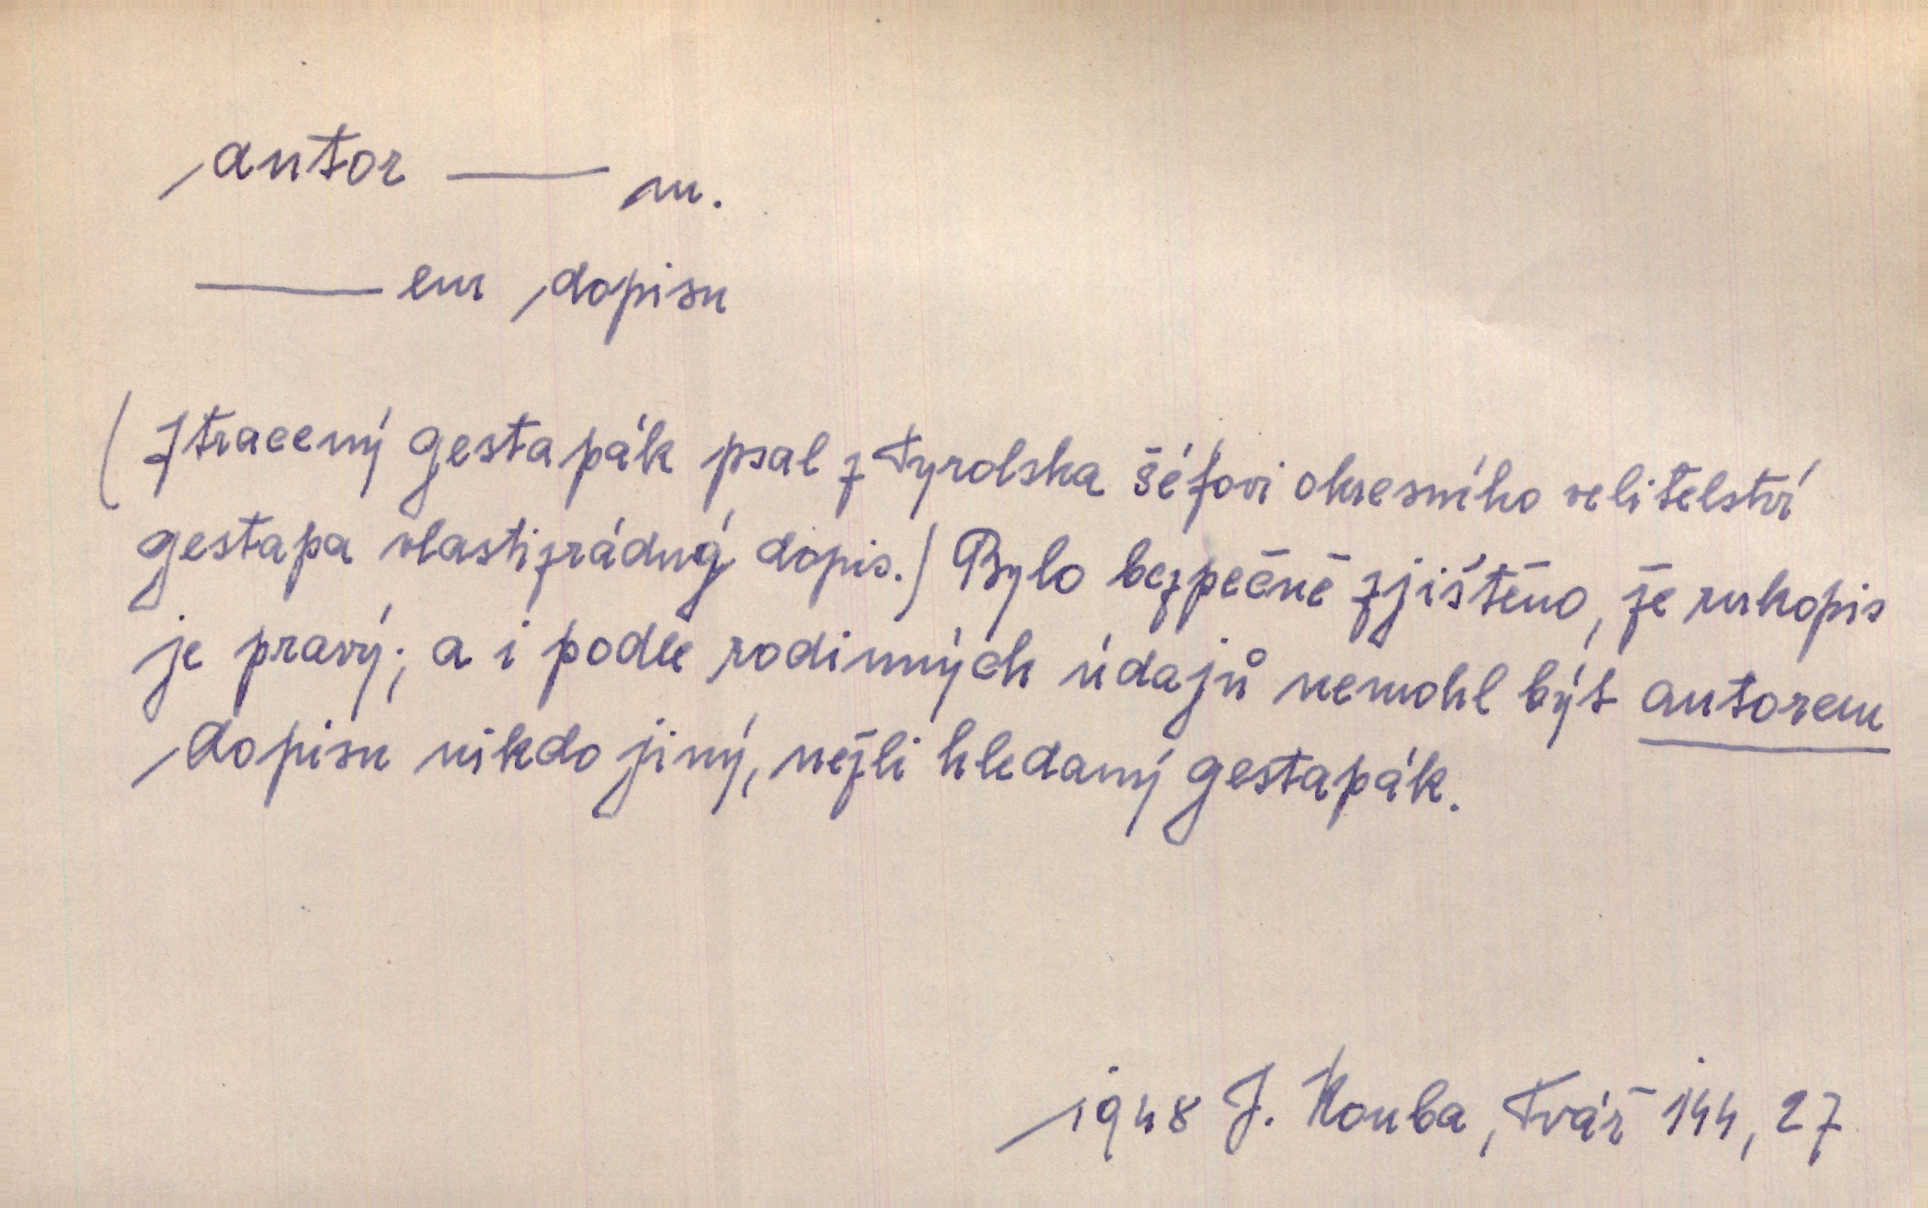 autor —— m.
—— em dopisu
(Ztracený gestapák psal z Tyrolska šéfovi okresního velitelství
gestapa vlastizrádný dopis.) Bylo bezpečně zjištěno, že rukopis
je pravý; a i podle rodinných údajů nemohl být autorem
dopisu nikdo jiný, nežli hledaný gestapák.
1948 J. Kouba, Tvář 144, 27